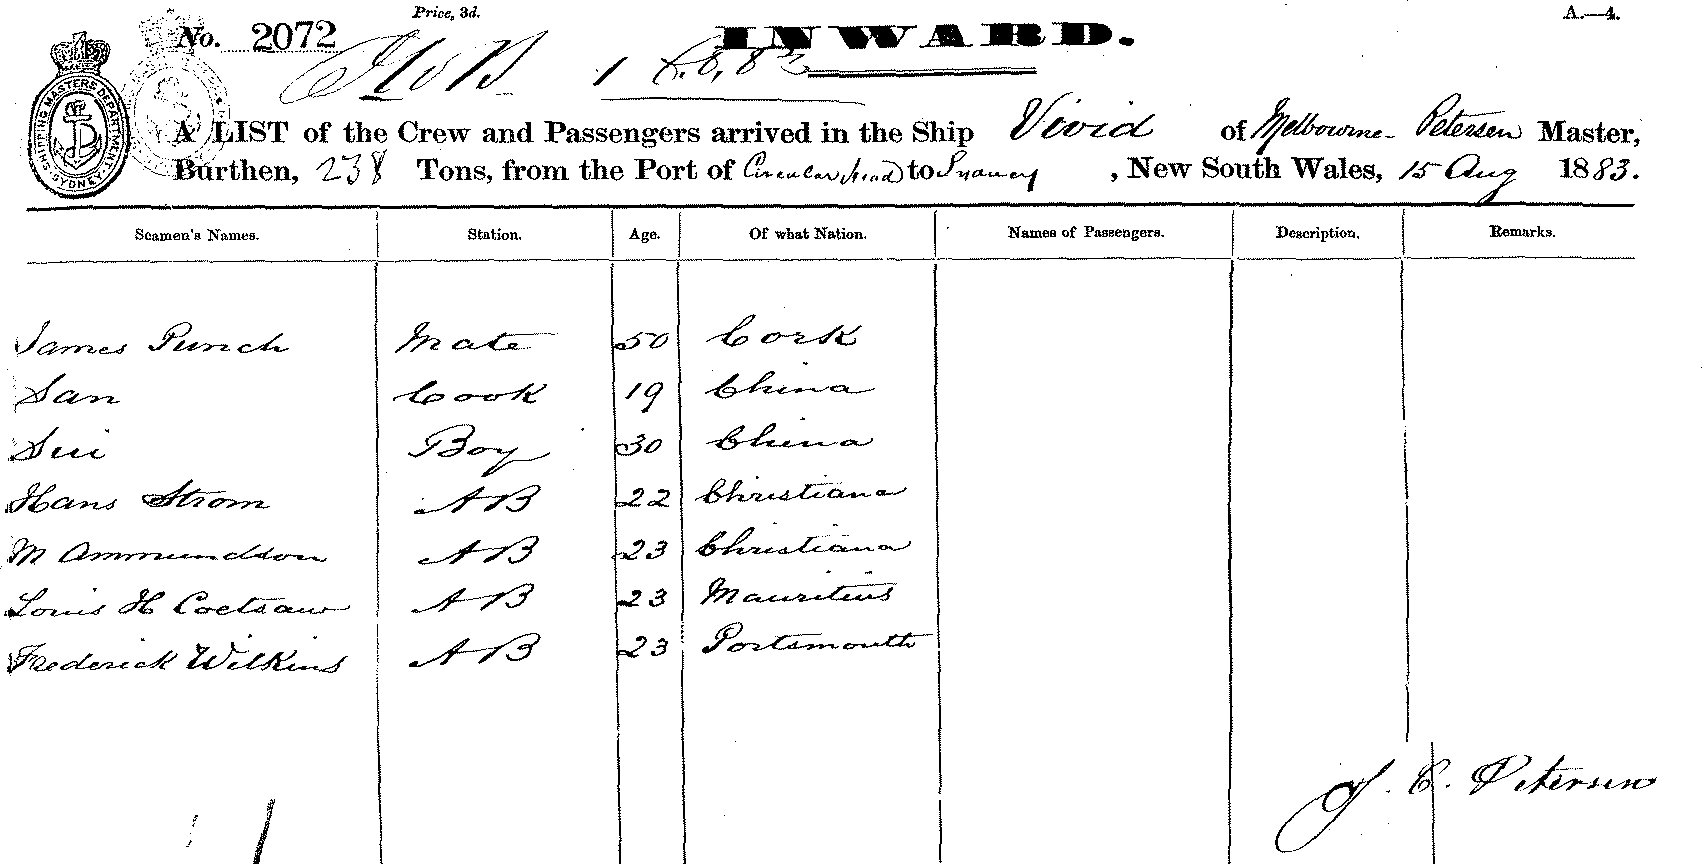 Price, 3d.
A.—4.
No. 2072
INWARD.
SHIPPING MASTERS DEPARTMENT SYDNEY
A LIST of the Crew and Passengers arrived in the Ship Vivid of Melbourne - Petersen Master,
Burthen, 238 Tons, from the Port of Circular Head to Sydney, New South Wales, 15 Aug 1883.
Seamen's Names. Station. Age. Of what Nation. Names of Passengers. Description. Remarks.
James Punch Mate 50 Cork
San Cook 19 China
Sui Boy 30 China
Hans Strom AB 22 Christiana
M Ammundson AB 23 Christiana
Louis H Coetsaw AB 23 Mauritius
Frederick Wilkins AB 23 Portsmouth
J. C. Petersen